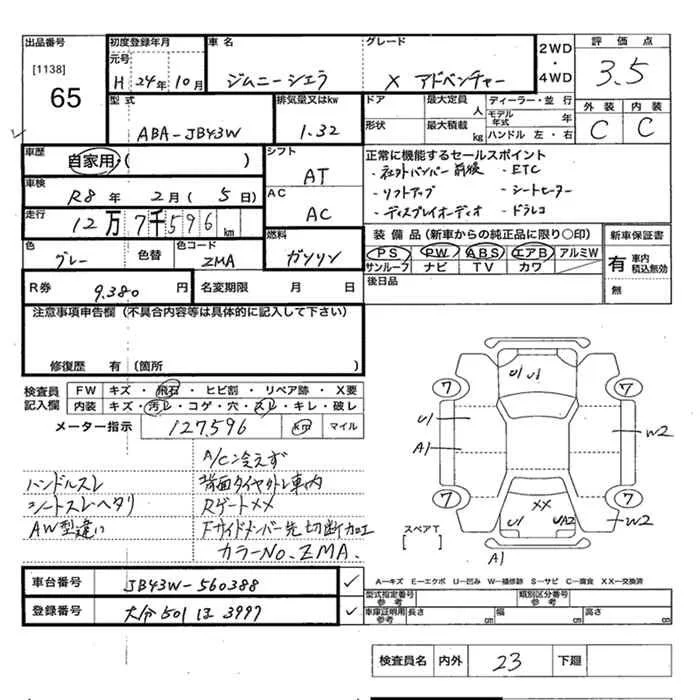 出品番号 初度登録年月 車名 グレード 2WD・4WD 評価点
[1138] 65 元号 H 24年 10月 ジムニーシエラ X アドベンチャー 3.5
型式 排気量又はkw ドア 最大定員 人 ディーラー・並行 外装 内装
ABA-JB43W 1.32 形状 最大積載 kg モデル年式 年 C C
ハンドル 左・右
車歴 自家用・( ) シフト AT 正常に機能するセールスポイント
・社外バンパー前後 ・ETC
車検 R8年 2月(5日) AC AC ・リフトアップ ・シートヒーター
走行 12万7千596km ・ディスプレイオーディオ ・ドラレコ
色 グレー 色替 色コード ZMA 燃料 ガソリン 装備品(新車からの純正品に限り〇印) 新車保証書
PS PW ABS エアB アルミW 有 車内 積込無効
サンルーフ ナビ TV カワ 無
R券 9.380円 名変期限 月 日 後日品
注意事項申告欄(不具合内容等は具体的に記入して下さい)
修復歴 有(箇所 )
検査員記入欄 FW キズ・飛石・ヒビ割・リペア跡・X要
内装 キズ・汚レ・コゲ・穴・スレ・キレ・破レ
メーター指示 127,596 km マイル
A/C冷えず
ハンドルスレ 背面タイヤ外レ車内
シートスレヘタリ Rゲートメメ
AW型違い Fサイドメンバー先切断加工
カラーNo.ZMA.
U1 U1
7 7
U1 W2
A1
7 7
XX
U1 UA2 W2
スペアT [ ] A1
A―キズ E―エクボ U―凹み W―補修跡 S―サビ C―腐食 XX―交換済
車台番号 JB43W-560388 ✓ 型式指定番号 参考 類別区分番号 参考
登録番号 大分501ほ3997 ✓ 車庫証明用 参考 長さ cm 幅 cm 高さ cm
検査員名 内外 23 下廻